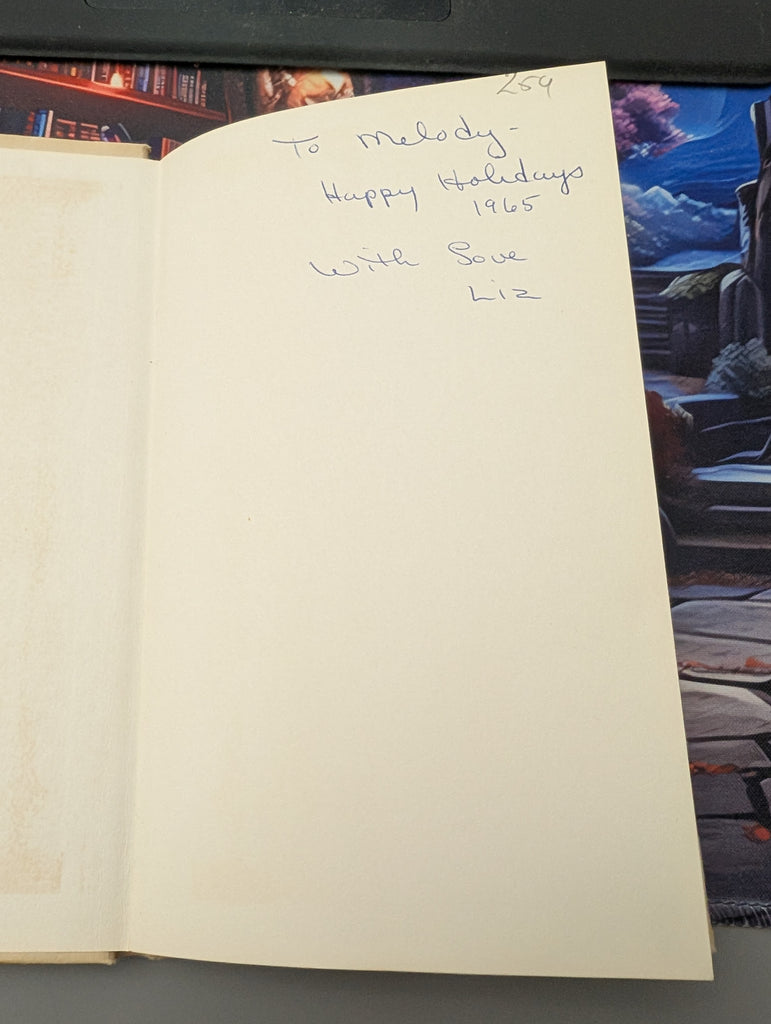 259
To Melody-
Happy Holidays
1965
With Love
Liz